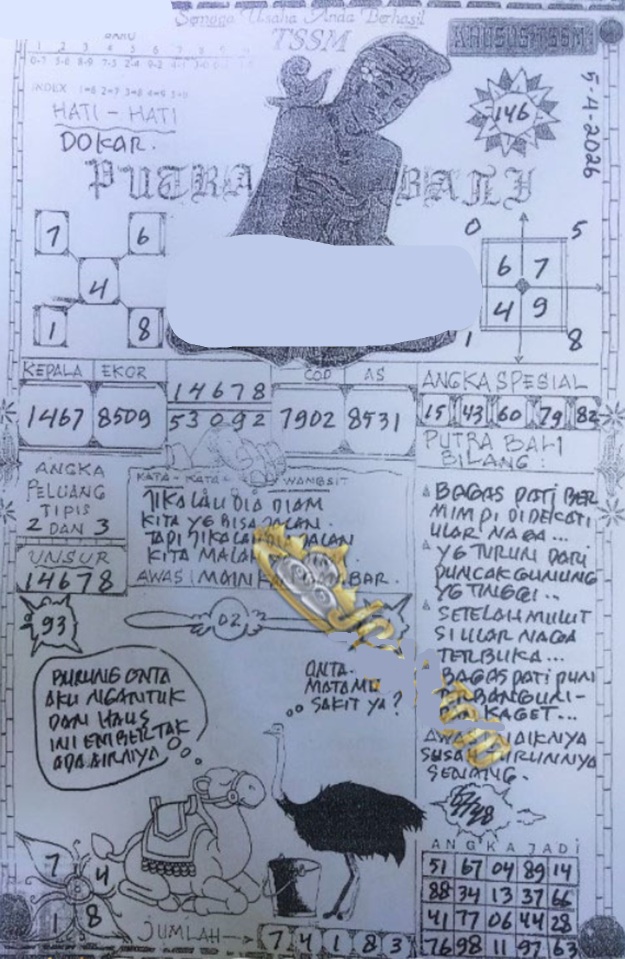 Semoga Usaha Anda Berhasil
TSSM
KHUSUS TSSM
BARU
1 2 3 4 5 6 7 8 9
INDEX 1=6 2=7 3=8 4=9 5=0
HATI - HATI
DOKAR.
146
5-4-2026
PUTRA BALI
7 6
4
1 8
0 5
6 7
4 9
1 8
KEPALA EKOR
1467 8509
14678
53092
COP AS
7902 8531
ANGKA SPESIAL
15 43 60 79 82
ANGKA
PELUANG
TIPIS
2 DAN 3
UNSUR
14678
93
KATA - KATA WANGSIT
JIKALAU DIA DIAM
KITA YG BISA JALAN.
TAPI JIKALAU DIA JALAN
KITA MALAH
AWAS! MAIN
BAR.
02
PUTRA BALI
BILANG :
BAGAS PATI BER
MIMPI DIDEKATI
ULAR NAGA...
YG TURUN DARI
PUNCAK GUNUNG
YG TINGGI..
SETELAH MULUT
SI ULAR NAGA
TERBUKA...
BAGAS PATI PUN
TERBANGUN-
KAGET...
AWAS NAIKNYA
SUSAH TURUNNYA
SENANG.
BURUNG ONTA
AKU NGANTUK
DAN HAUS
INI EMBER TAK
ADA AIRNYA
ONTA.
MATAMU
SAKIT YA?
7 4
1 8
JUMLAH 7 4 1 8 3
ANGKA JADI
51 67 04 89 14
88 34 13 37 66
41 77 06 44 28
76 98 11 97 63